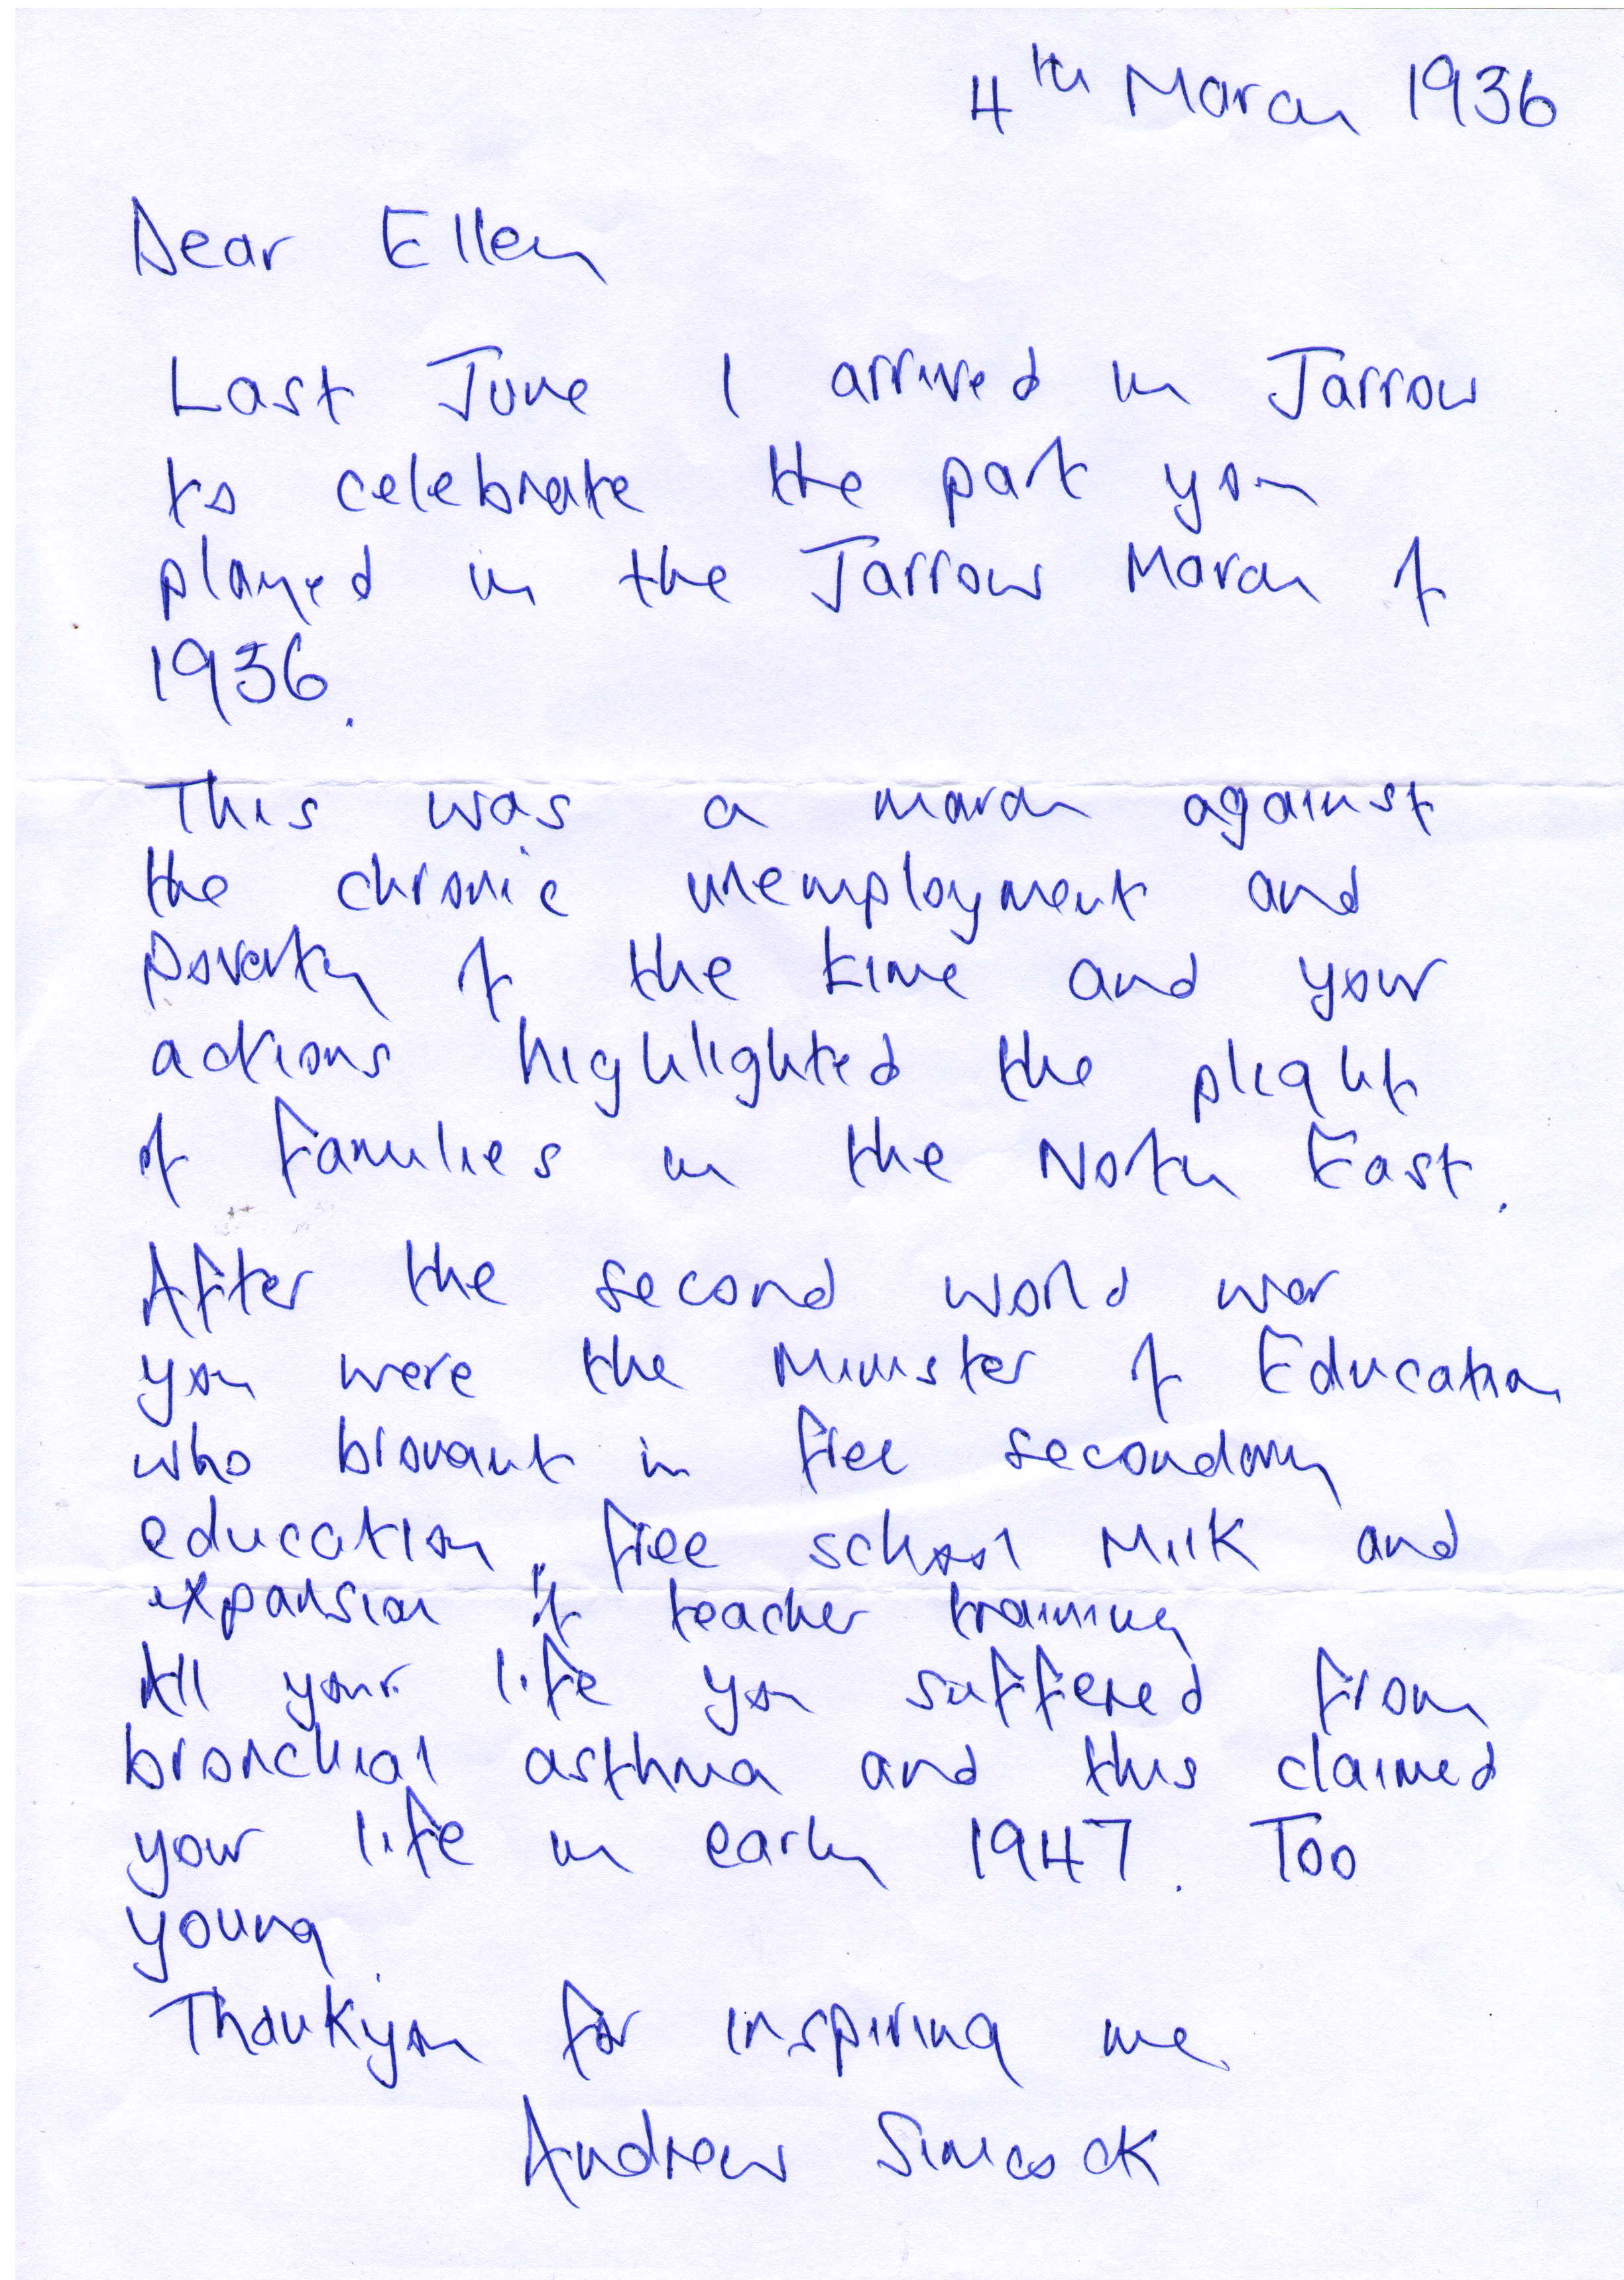 4th March 1936
Dear Ellen
Last June I arrived in Jarrow
to celebrate the part you
played in the Jarrow March of
1936.
This was a march against
the chronic unemployment and
poverty of the time and your
actions highlighted the plight
of families in the North East.
After the second world war
you were the Minister of Education
who brought in free secondary
education, free school Milk and
expansion of teacher training
All your life you suffered from
bronchial asthma and this claimed
your life in early 1947. Too
young.
Thankyou for inspiring me.
Andrew Simcock